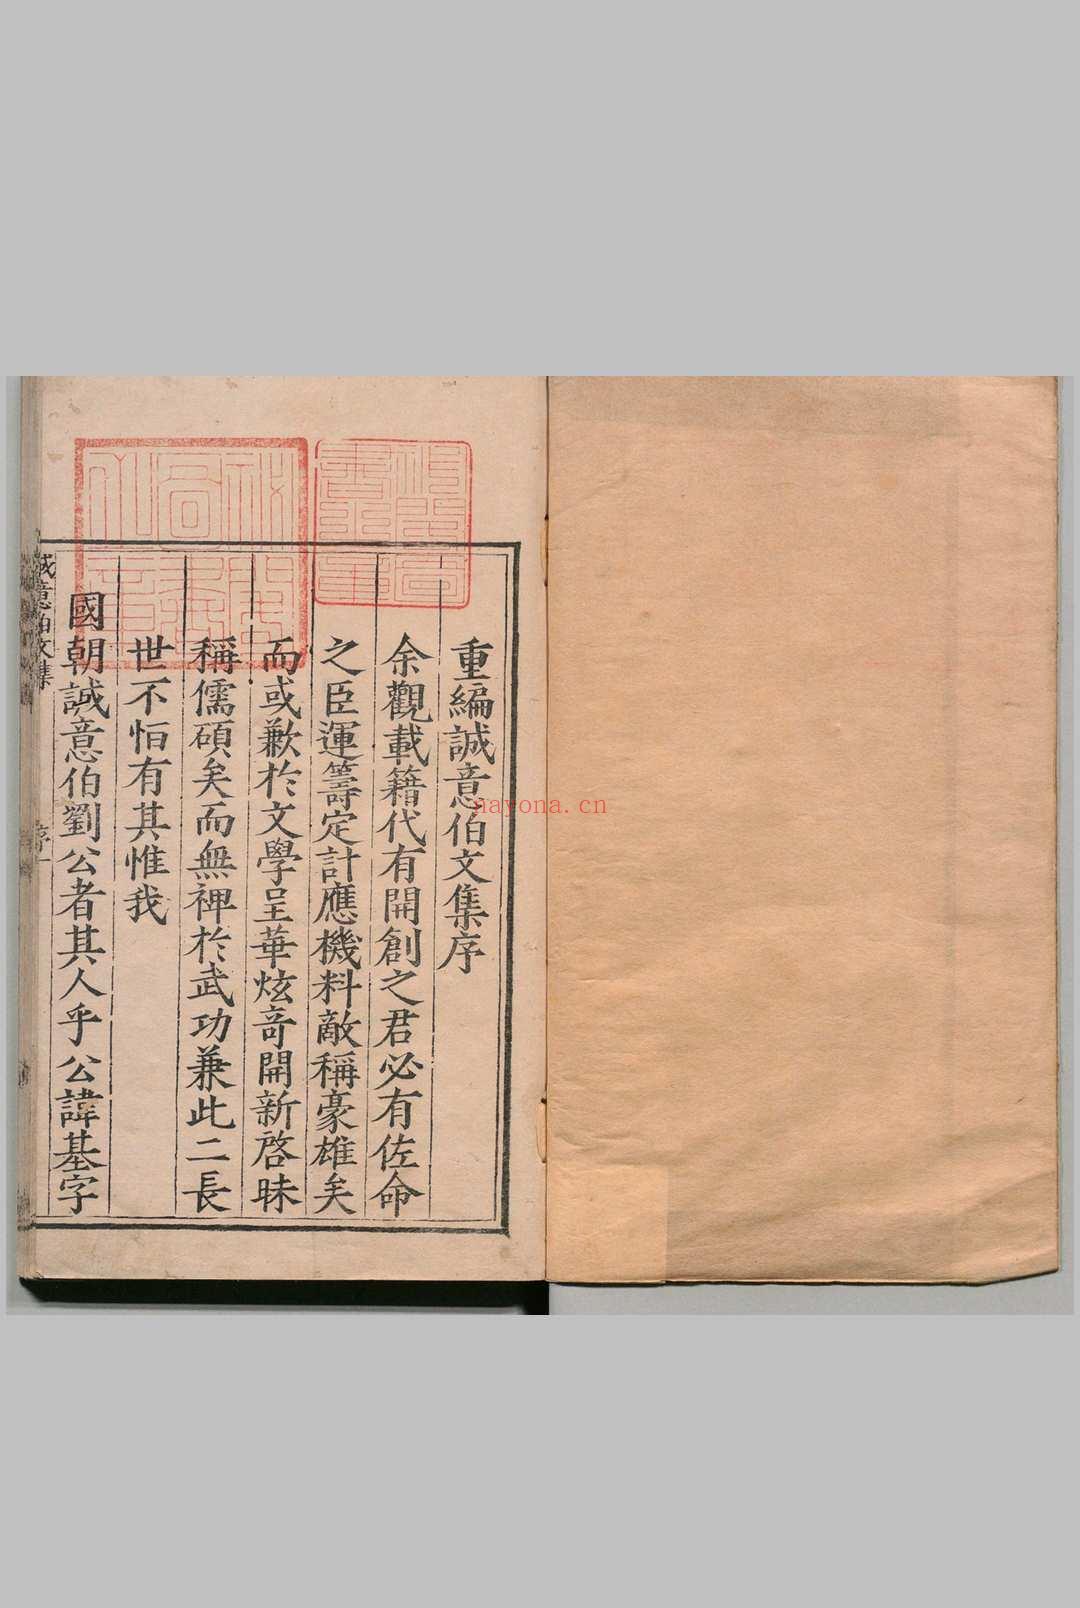 重編誠意伯文集序
余觀載籍代有開創之君必有佐命
之臣運籌定計應機料敵稱豪雄矣
而或歉於文學呈華炫竒開新啓昧
稱儒碩矣而無裨於武功兼此二長
世不恒有其惟我
國朝誠意伯劉公者其人乎公諱基字
誠意伯文集
序一
nayona.cn